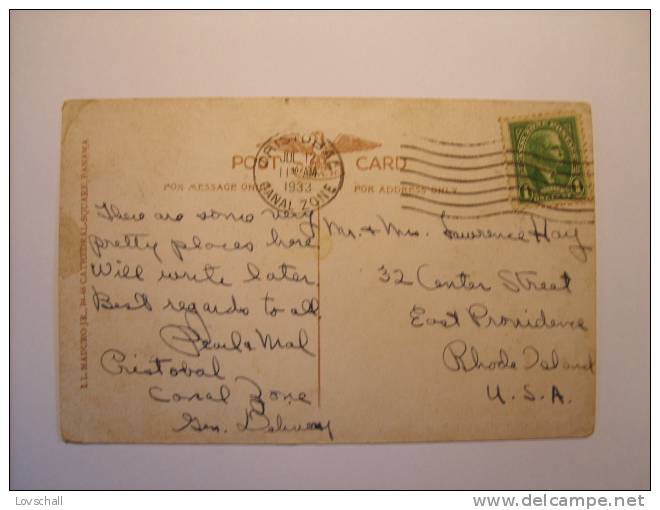 POST CARD
FOR MESSAGE ONLY
FOR ADDRESS ONLY
CRISTOBAL
JUL 12
11 AM
1933
CANAL ZONE
1 1
I. L. MADURO JR., CATHEDRAL SQUARE PANAMA
There are some very
pretty places here
Will write later.
Best regards to all
Pearl & Mal
Cristobal
Canal Zone
Gen. Delivery
Mr. & Mrs. Lawrence Hay
32 Center Street
East Providence
Rhode Island
U.S.A.
Lovschall
delcampe.net